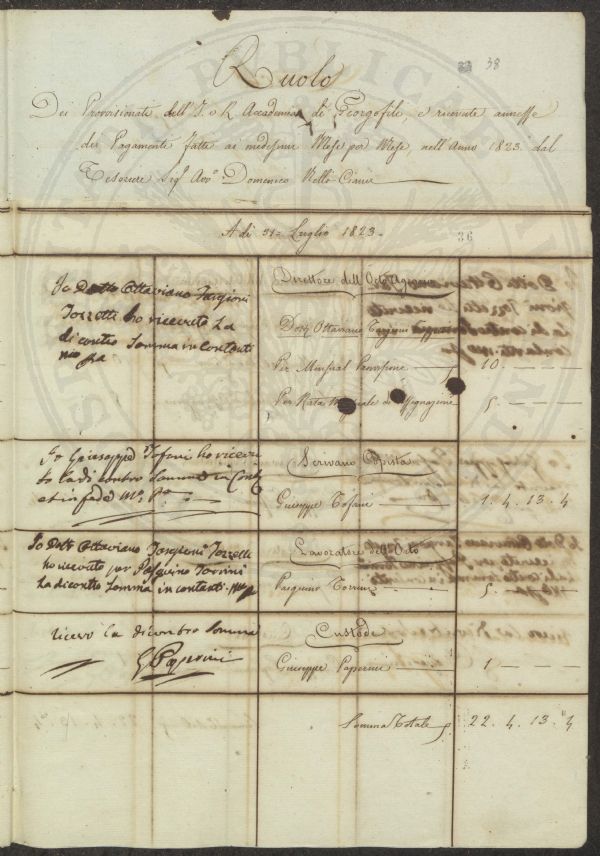 38
Ruolo
Dei Provisionati dell'I. e R. Accademia di Georgofili, e ricevute annesse
dei Pagamenti fatti ai medesimi Mese per Mese, nell'Anno 1823 dal
Tesoriere Sigr Avvo Domenico Nelli Ciani
A di 31 Luglio 1823.
36
Io Dotto Ottaviano Targioni
Tozzetti ho ricevuto la
di contro Somma in contanti
Direttore dell'Orto Agrio
Dotr Ottaviano Targioni
Per Mensual Penzione 10. — — —
Per Rata di Assegnazione 5. — — —
Io Giuseppe Tofani ho ricevu
to la di contro Somma in Conti
et in fede Mo Po
Scrivano Copista
Giuseppe Tofani 1. 4. 13. 4
Io Dotto Ottaviano Targioni Tozzetti
ho ricevuto per Pasquino Torrini
La di contro Somma in contanti
Lavoratore dell'Orto
Pasquino Torrini 5. — — —
ricevo la di contro Somma
G Paperini
Custode
Giuseppe Paperini 1 — — —
Somma Totale 22. 4. 13. 4